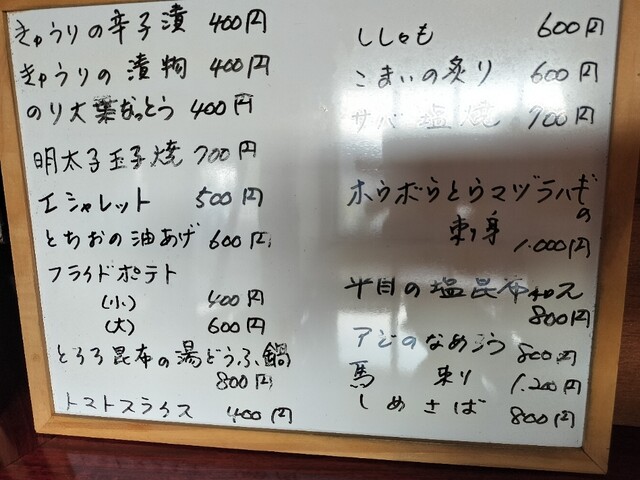 きゅうりの辛子漬 400円
きゅうりの 漬物 400円
のり大葉なっとう 400円
明太子玉子焼 700円
エシャレット 500円
とちおの油あげ 600円
フライドポテト
(小) 400円
(大) 600円
とろろ昆布の湯どうふ鍋
800円
トマトスライス 400円
ししゃも 600円
こまいの炙り 600円
サバ塩焼 700円
ホウボウとウマヅラハギの
刺身
1.000円
平目の塩昆布和え
800円
アジのなめろう 800円
馬刺し 1.200円
しめさば 800円